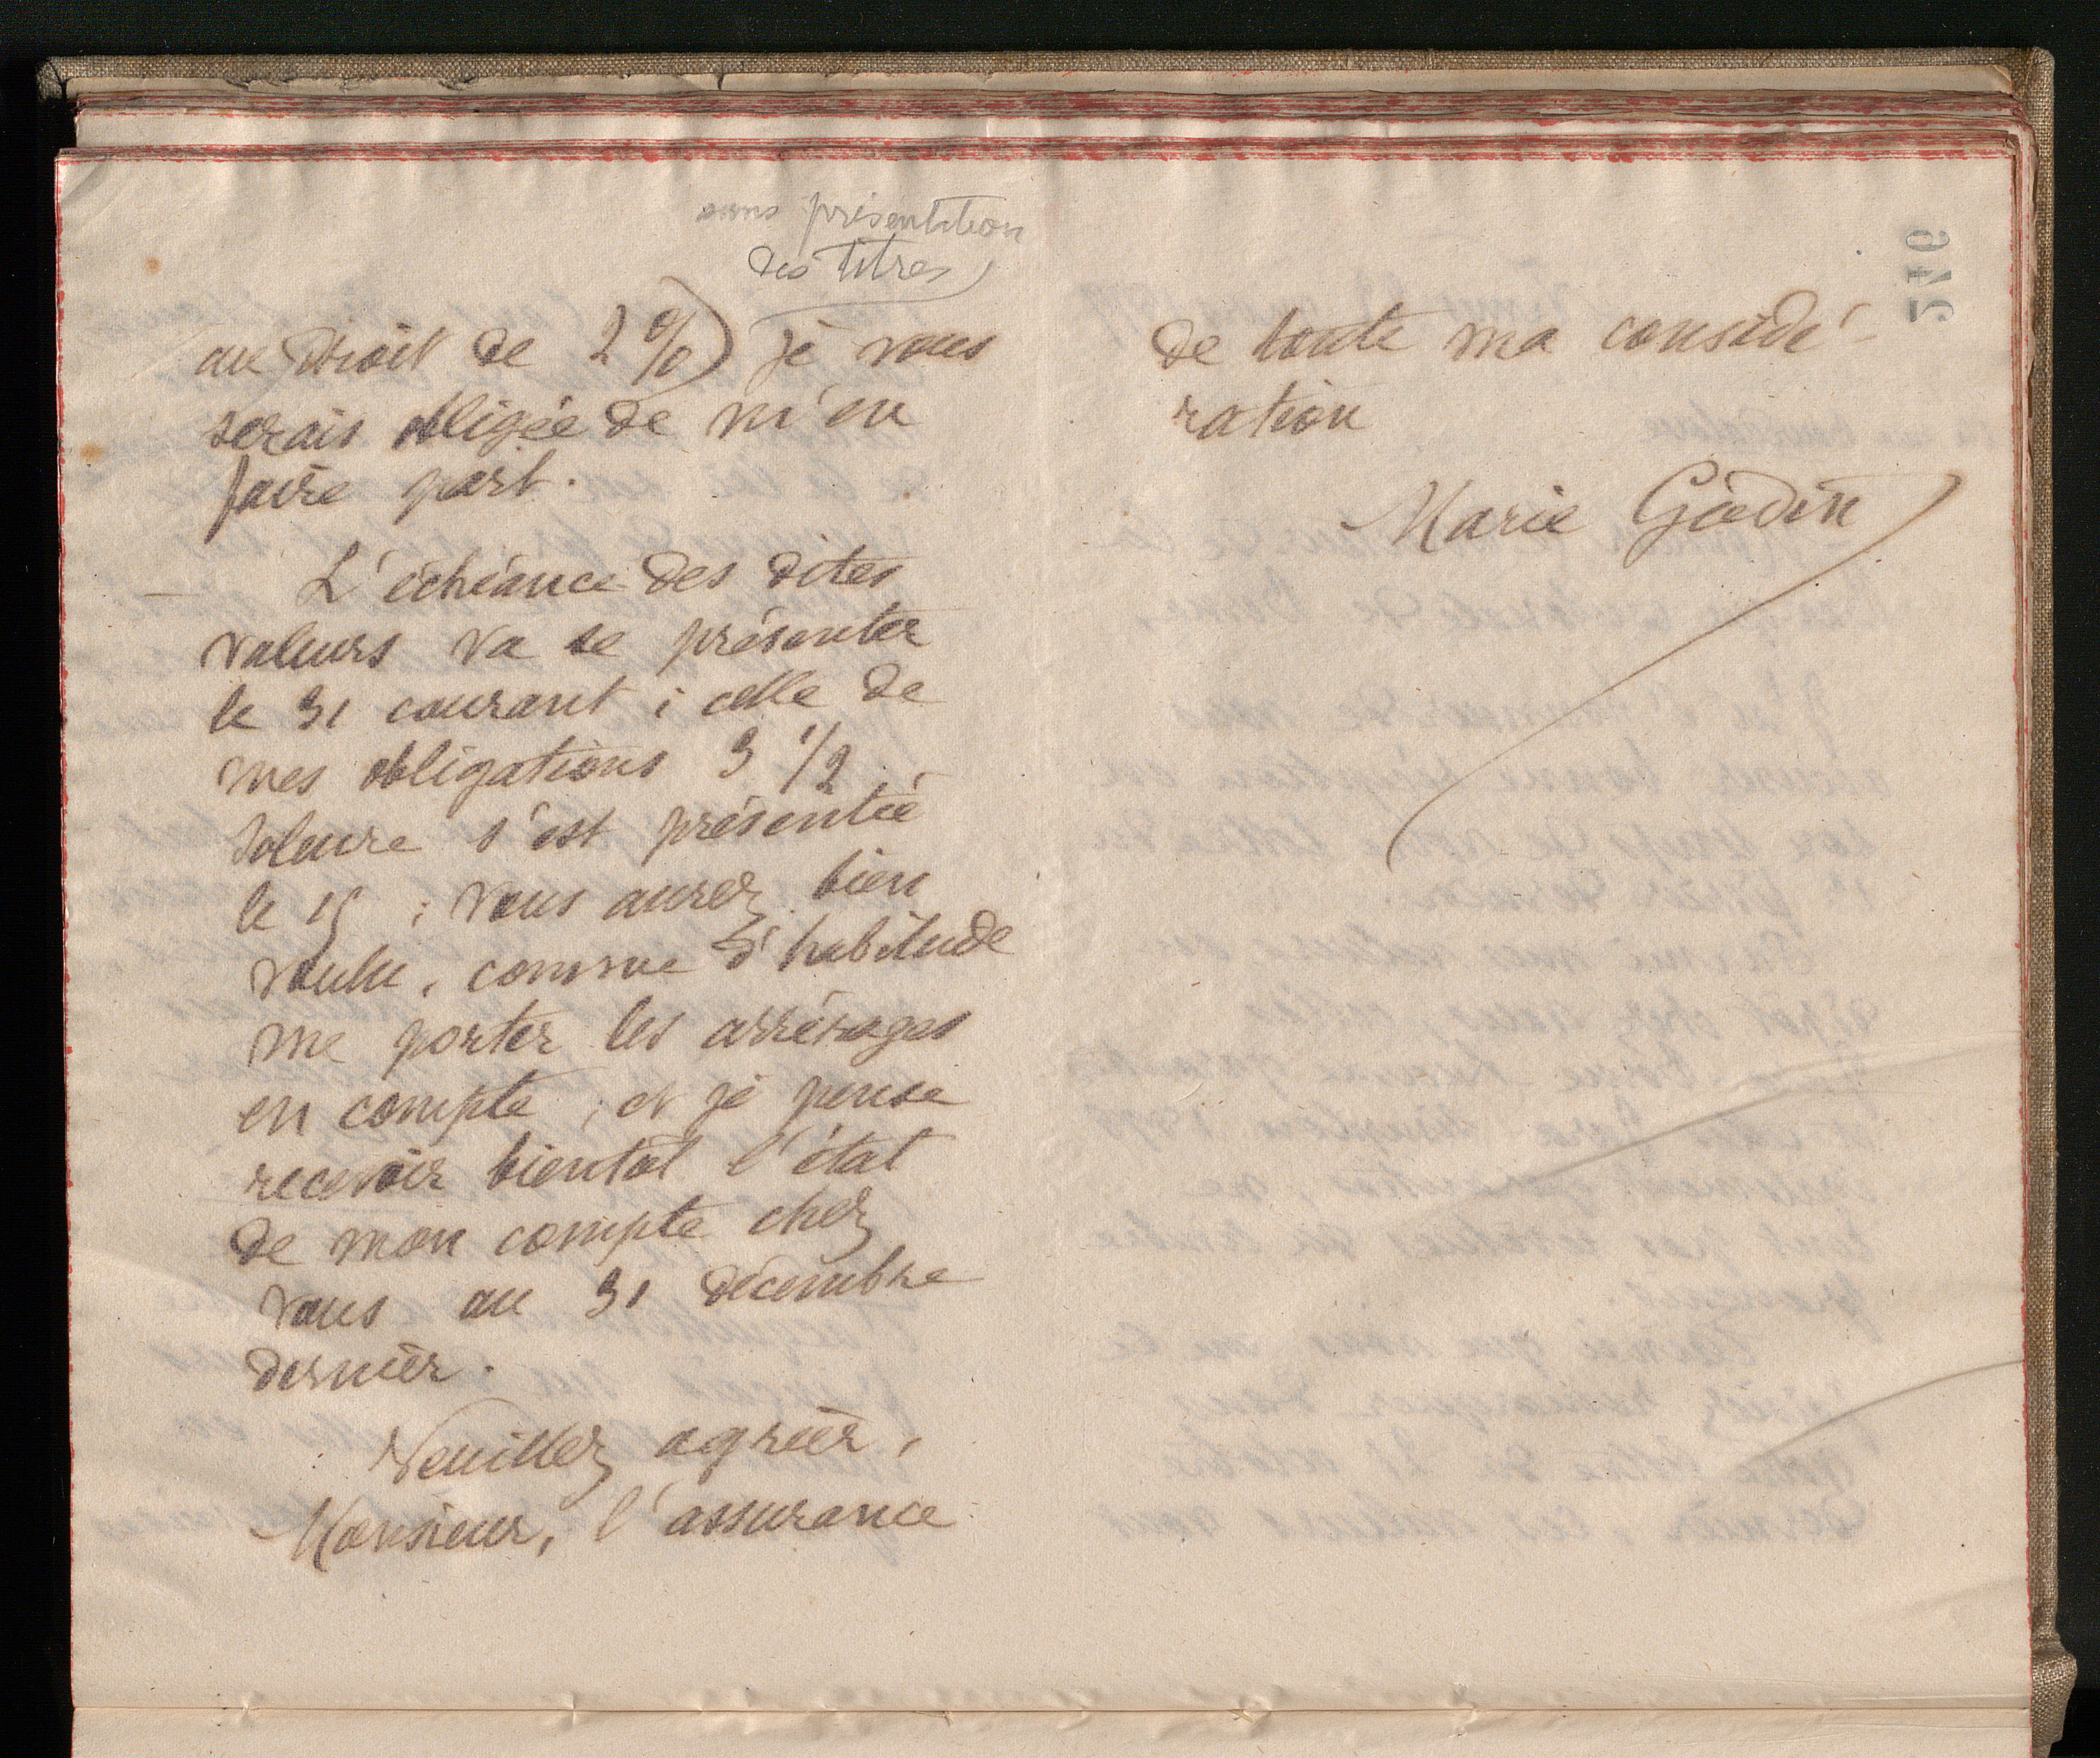 sans présentation
des titres
au droit de 2 %) je vous
serais obligée de m'en
faire part.
L'échéance des dites
valeurs va se présenter
le 31 courant ; celle de
mes obligations 3 1/2
Soleure s'est présentée
le 15 ; vous aurez bien
voulu, comme d'habitude
me porter les arrérages
en compte ; et je pense
recevoir bientôt l'état
de mon compte chez
vous au 31 décembre
dernier.
Veuillez agréer,
Monsieur, l'assurance
de toute ma considé-
ration
Marie Godin